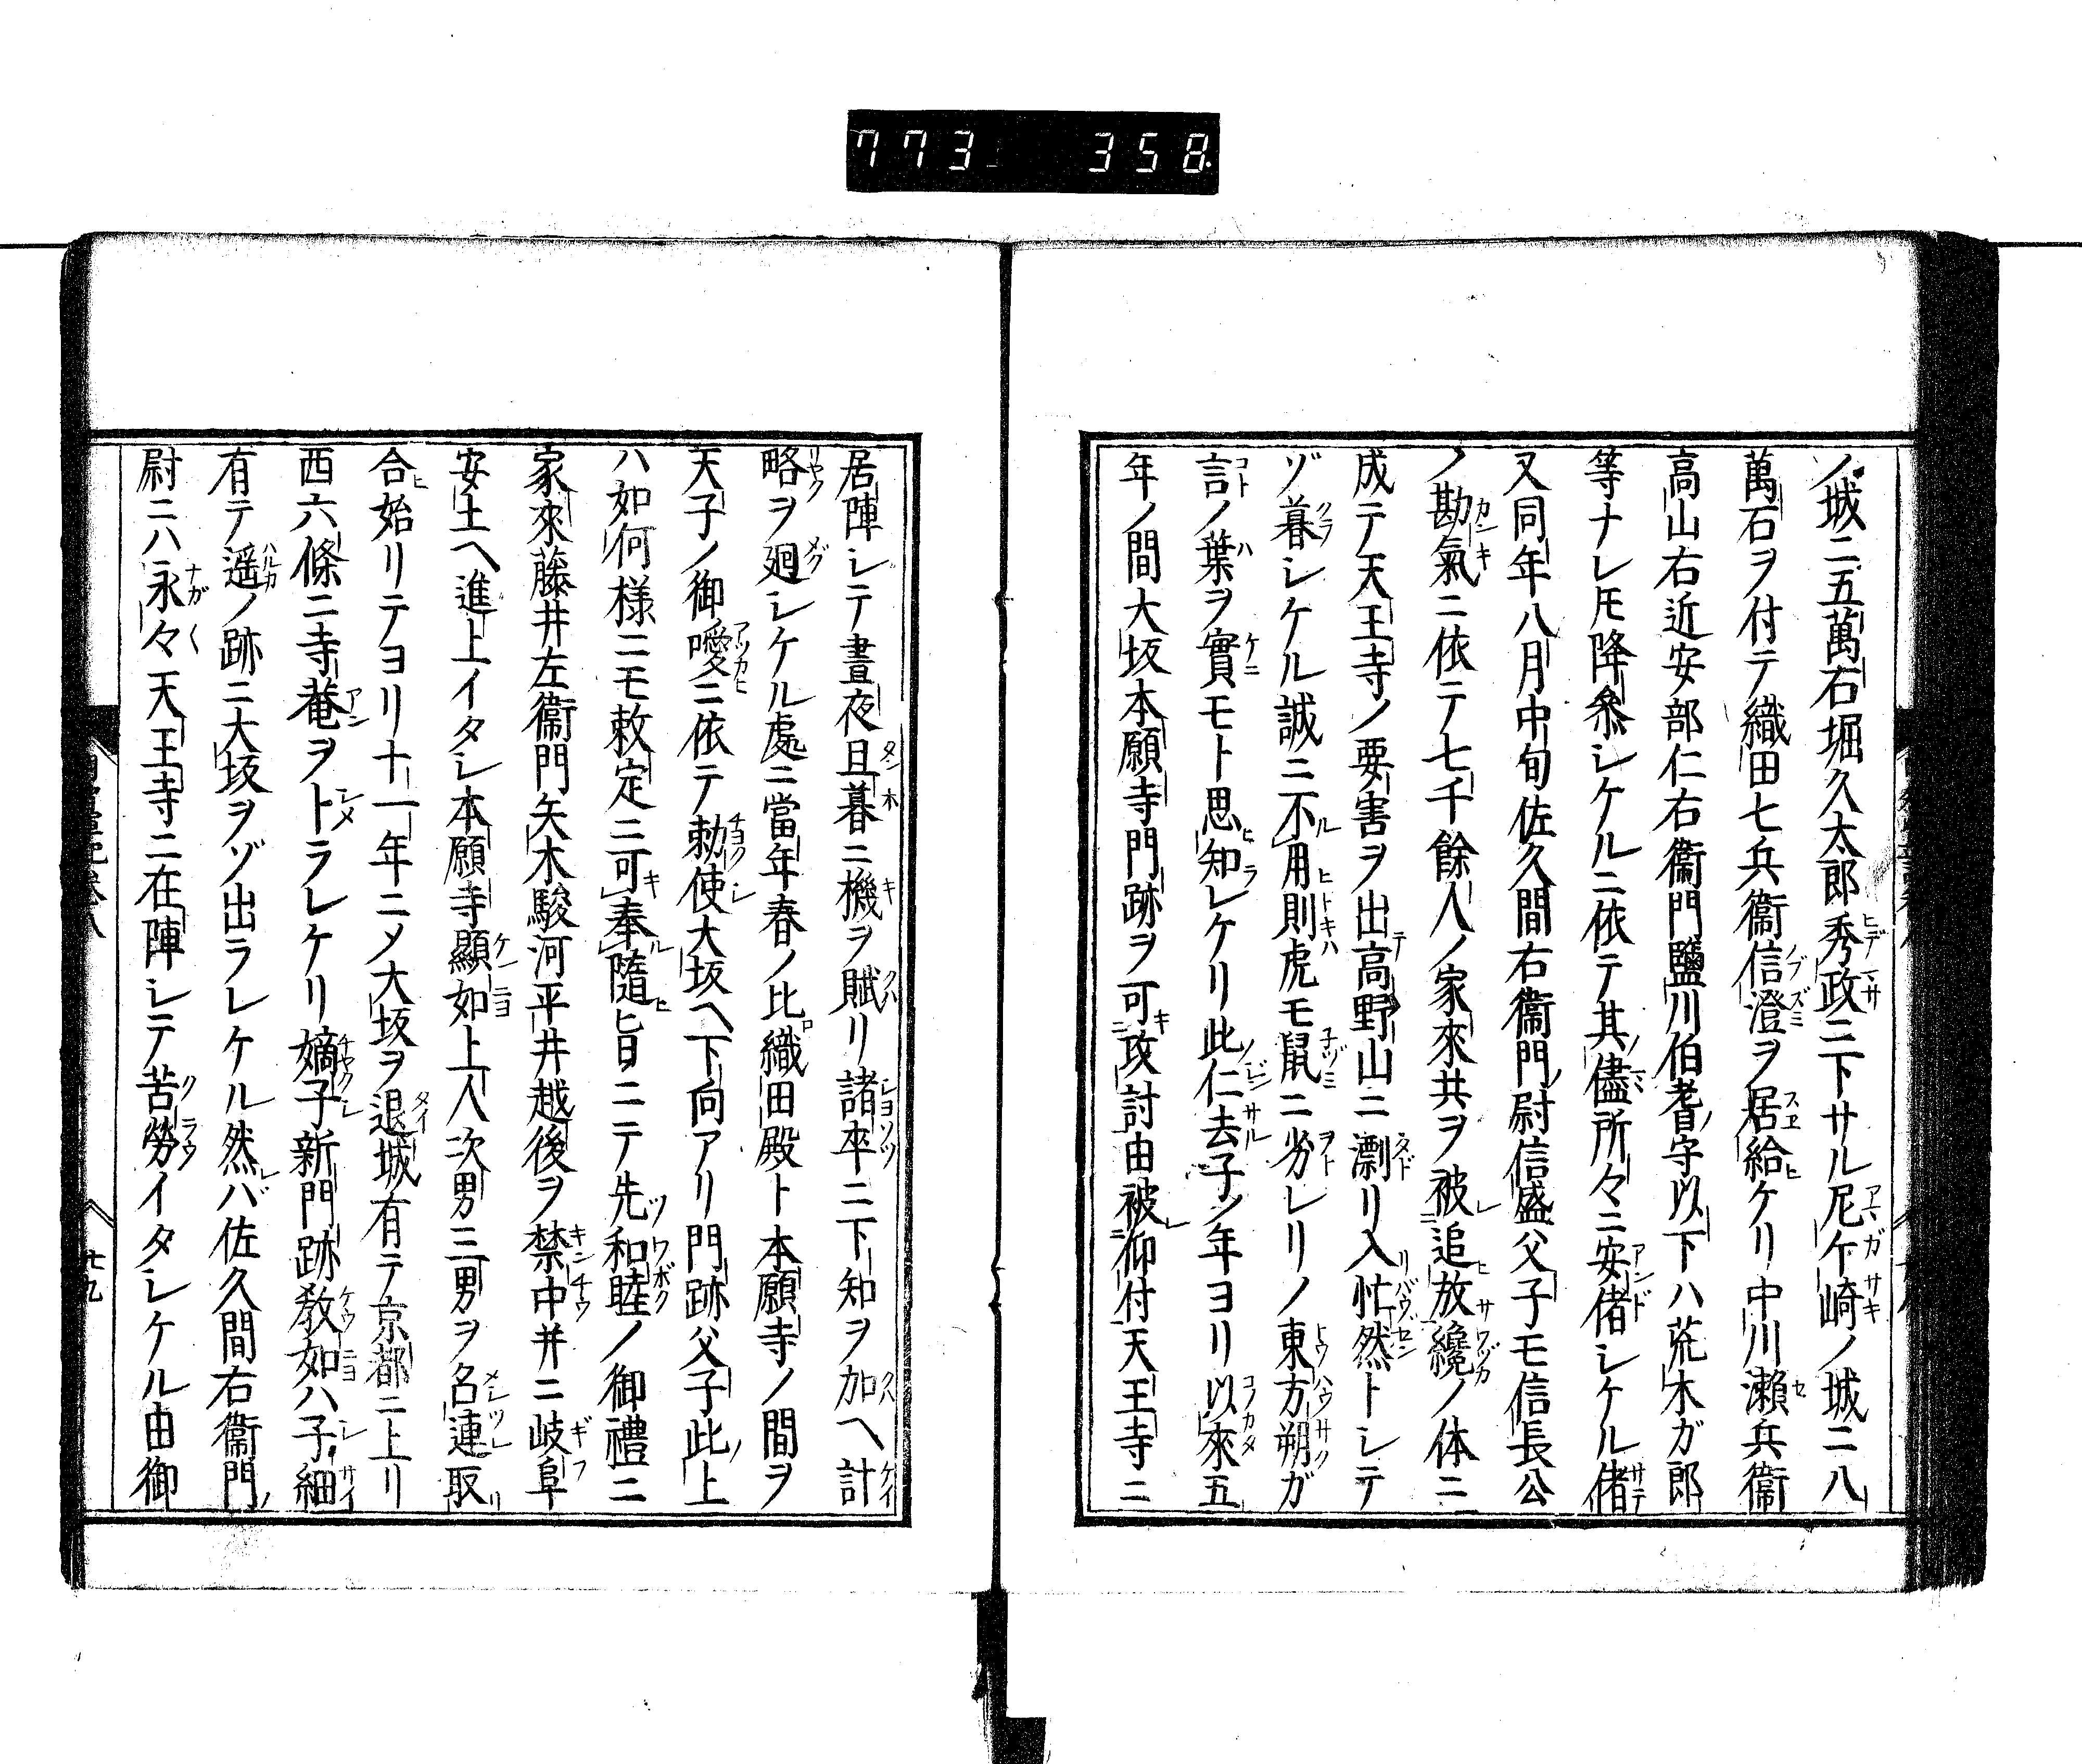 773 358
ノ城ニ五萬石堀久太郎秀政ニ下サル尼ケ崎ノ城ニ八
萬石ヲ付テ織田七兵衞信澄ヲ居給ケリ中川瀬兵衞
高山右近安部仁右衞門鹽川伯耆守以下ハ荒木ガ郎
等ナレ𪜈降叅シケルニ依テ其儘所々ニ安偖シケル偖
又同年八月中旬佐久間右衞門尉信盛父子モ信長公
ノ勘氣ニ依テ七千餘人ノ家來共ヲ被追放纔ノ体ニ
成テ天王寺ノ要害ヲ出高野山ニ漂リ入忙然トシテ
ゾ暮シケル誠ニ不用則虎モ鼠ニ劣レリノ東方朔ガ
言ノ葉ヲ實モト思知レケリ此仁去子ノ年ヨリ以來五
年ノ間大坂本願寺門跡ヲ可攻討由被仰付天王寺ニ
居陣シテ晝夜旦暮ニ機ヲ賦リ諸卒ニ下知ヲ加ヘ計
略ヲ廻シケル處ニ當年春ノ比織田殿ト本願寺ノ間ヲ
天子ノ御噯ニ依テ勅使大坂ヘ下向アリ門跡父子此上
ハ如何樣ニモ敕定ニ可奉隨旨ニテ先和睦ノ御禮ニ
家來藤井左衞門矢木駿河平井越後ヲ禁中并ニ岐阜
安土ヘ進上イタシ本願寺顯如上人次男三男ヲ名連取
合始リテヨリ十一年ニメ大坂ヲ退城有テ京都ニ上リ
西六條ニ寺菴ヲトラレケリ嫡子新門跡敎如ハ子細
有テ遥ノ跡ニ大坂ヲゾ出ラレケル然バ佐久間右衞門
尉ニハ永々天王寺ニ在陣シテ苦勞イタシケル由御
廿九